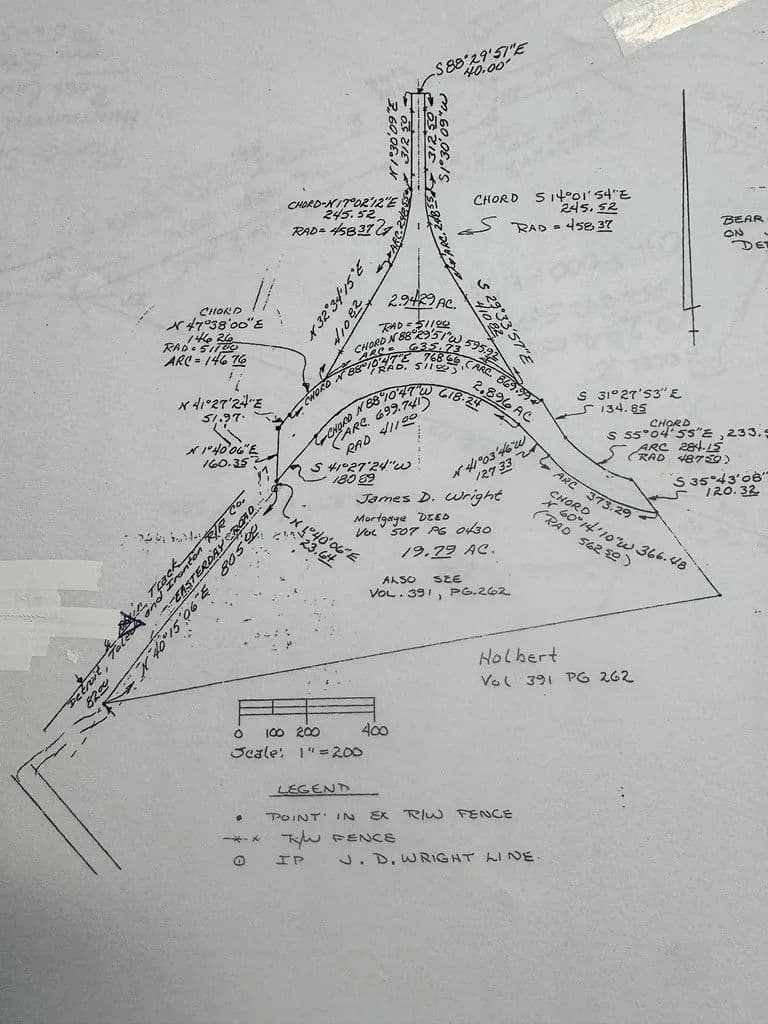 S 88°29'51"E
40.00'
N 1°30'09"E
312.50
S 1°30'09"W
312.50
CHORD-N17°02'12"E
245.52
RAD=458.37
ARC 248.55
ARC 248.55
CHORD S 14°01'54"E
245.52
RAD=458.37
BEAR
ON
DET
N 32°34'15"E
410.82
2.9429 AC.
S 29°33'57"E
410.82
CHORD
N 47°38'00"E
146.26
RAD=511.00
ARC=146.76
RAD=511.00
CHORD N 88°29'51"W 595.92
ARC= 635.73
CHORD N 88°10'47"E 768.66 (ARC 869.99)
(RAD. 511.00)
2.896 AC.
N 41°27'24"E
51.97
CHORD N 88°10'47"W 618.24
(ARC 699.741)
RAD 411.00
S 31°27'53"E
134.85
CHORD
S 55°04'55"E, 233.9
ARC 284.15
(RAD 487.50)
N 1°40'06"E
160.35
S 41°27'24"W
180.59
N 41°03'46"W
127.33
ARC 373.29
CHORD
N 60°41'10"W 366.48
(RAD 562.50)
S 35°43'08"
120.32
N 1°40'06"E
23.64
James D. Wright
Mortgage DEED
Vol 507 PG 0430
19.79 AC.
ALSO SEE
VOL. 391, PG. 262
Main Track
Detroit, Toledo and Ironton R/R Co.
EASTERDAY ROAD
N 40°15'06"E 805.00
82.00
Holbert
Vol 391 PG 262
0 100 200 400
Scale: 1"=200
LEGEND
• POINT IN EX R/W FENCE
R/W FENCE
IP J. D. WRIGHT LINE.